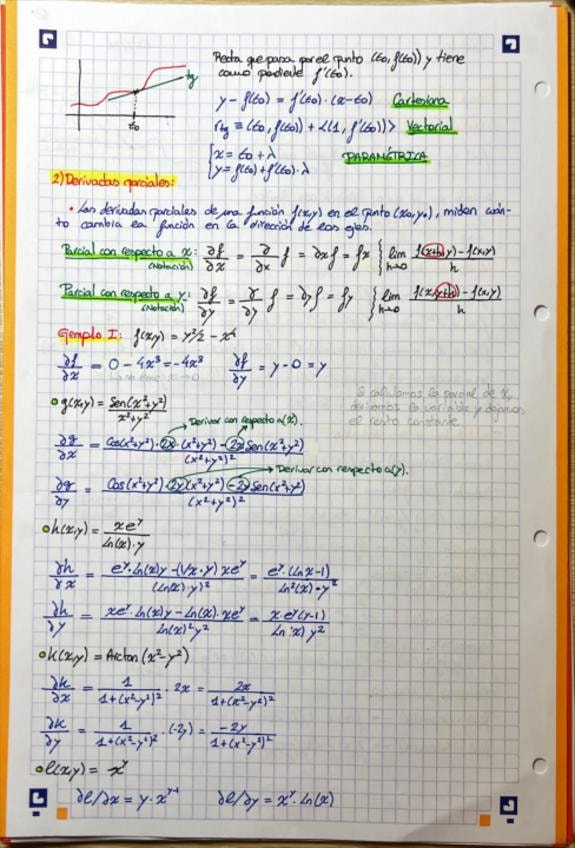 Recta que pasa por el punto (t₀, f(t₀)) y tiene
como pendiente f'(t₀).
tg
t₀
y - f(t₀) = f'(t₀)·(x-t₀) Cartesiana
r_tg ≡ (t₀, f(t₀)) + λ(1, f'(t₀))> Vectorial
{x = t₀ + λ
y = f(t₀) + f'(t₀)·λ
PARAMÉTRICA
2) Derivadas parciales:
• Las derivadas parciales de una función f(x,y) en el punto (x₀,y₀), miden cuán-
to cambia la función en la dirección de los ejes.
Parcial con respecto a x: ∂f/∂x = ∂/∂x f = ∂xf = fx { lim h→0 (f(x+h,y) - f(x,y))/h
(Notación)
Parcial con respecto a y: ∂f/∂y = ∂/∂y f = ∂yf = fy { lim h→0 (f(x,y+h) - f(x,y))/h
(Notación)
Ejemplo I: f(x,y) = y²/2 - x⁴
∂f/∂x = 0 - 4x³ = -4x³ ∂f/∂y = y - 0 = y
Si calculamos la parcial de x,
derivamos la variable y dejamos
el resto constante
g(x,y) = Sen(x²+y²)/x²+y²
Derivar con respecto a (x).
∂g/∂x = Cos(x²+y²)·2x·(x²+y²) - 2x Sen(x²+y²)/(x²+y²)²
Derivar con respecto a (y).
∂g/∂y = Cos(x²+y²)·2y(x²+y²) - 2y Sen(x²+y²)/(x²+y²)²
h(x,y) = xeʸ/Ln(x)·y
∂h/∂x = eʸ·Ln(x)y - (1/x·y)xeʸ/(Ln(x)·y)² = eʸ·(Lnx-1)/Ln²(x)·y²
∂h/∂y = xeʸ·Ln(x)y - Ln(x)·xeʸ/Ln(x)²y² = x·eʸ(y-1)/Ln(x)y²
k(x,y) = Arctan(x²-y²)
∂k/∂x = 1/1+(x²-y²)² · 2x = 2x/1+(x²-y²)²
∂k/∂y = 1/1+(x²-y²)² · (-2y) = -2y/1+(x²-y²)²
l(x,y) = xʸ
∂l/∂x = y·xʸ⁻¹ ∂l/∂y = xʸ·Ln(x)